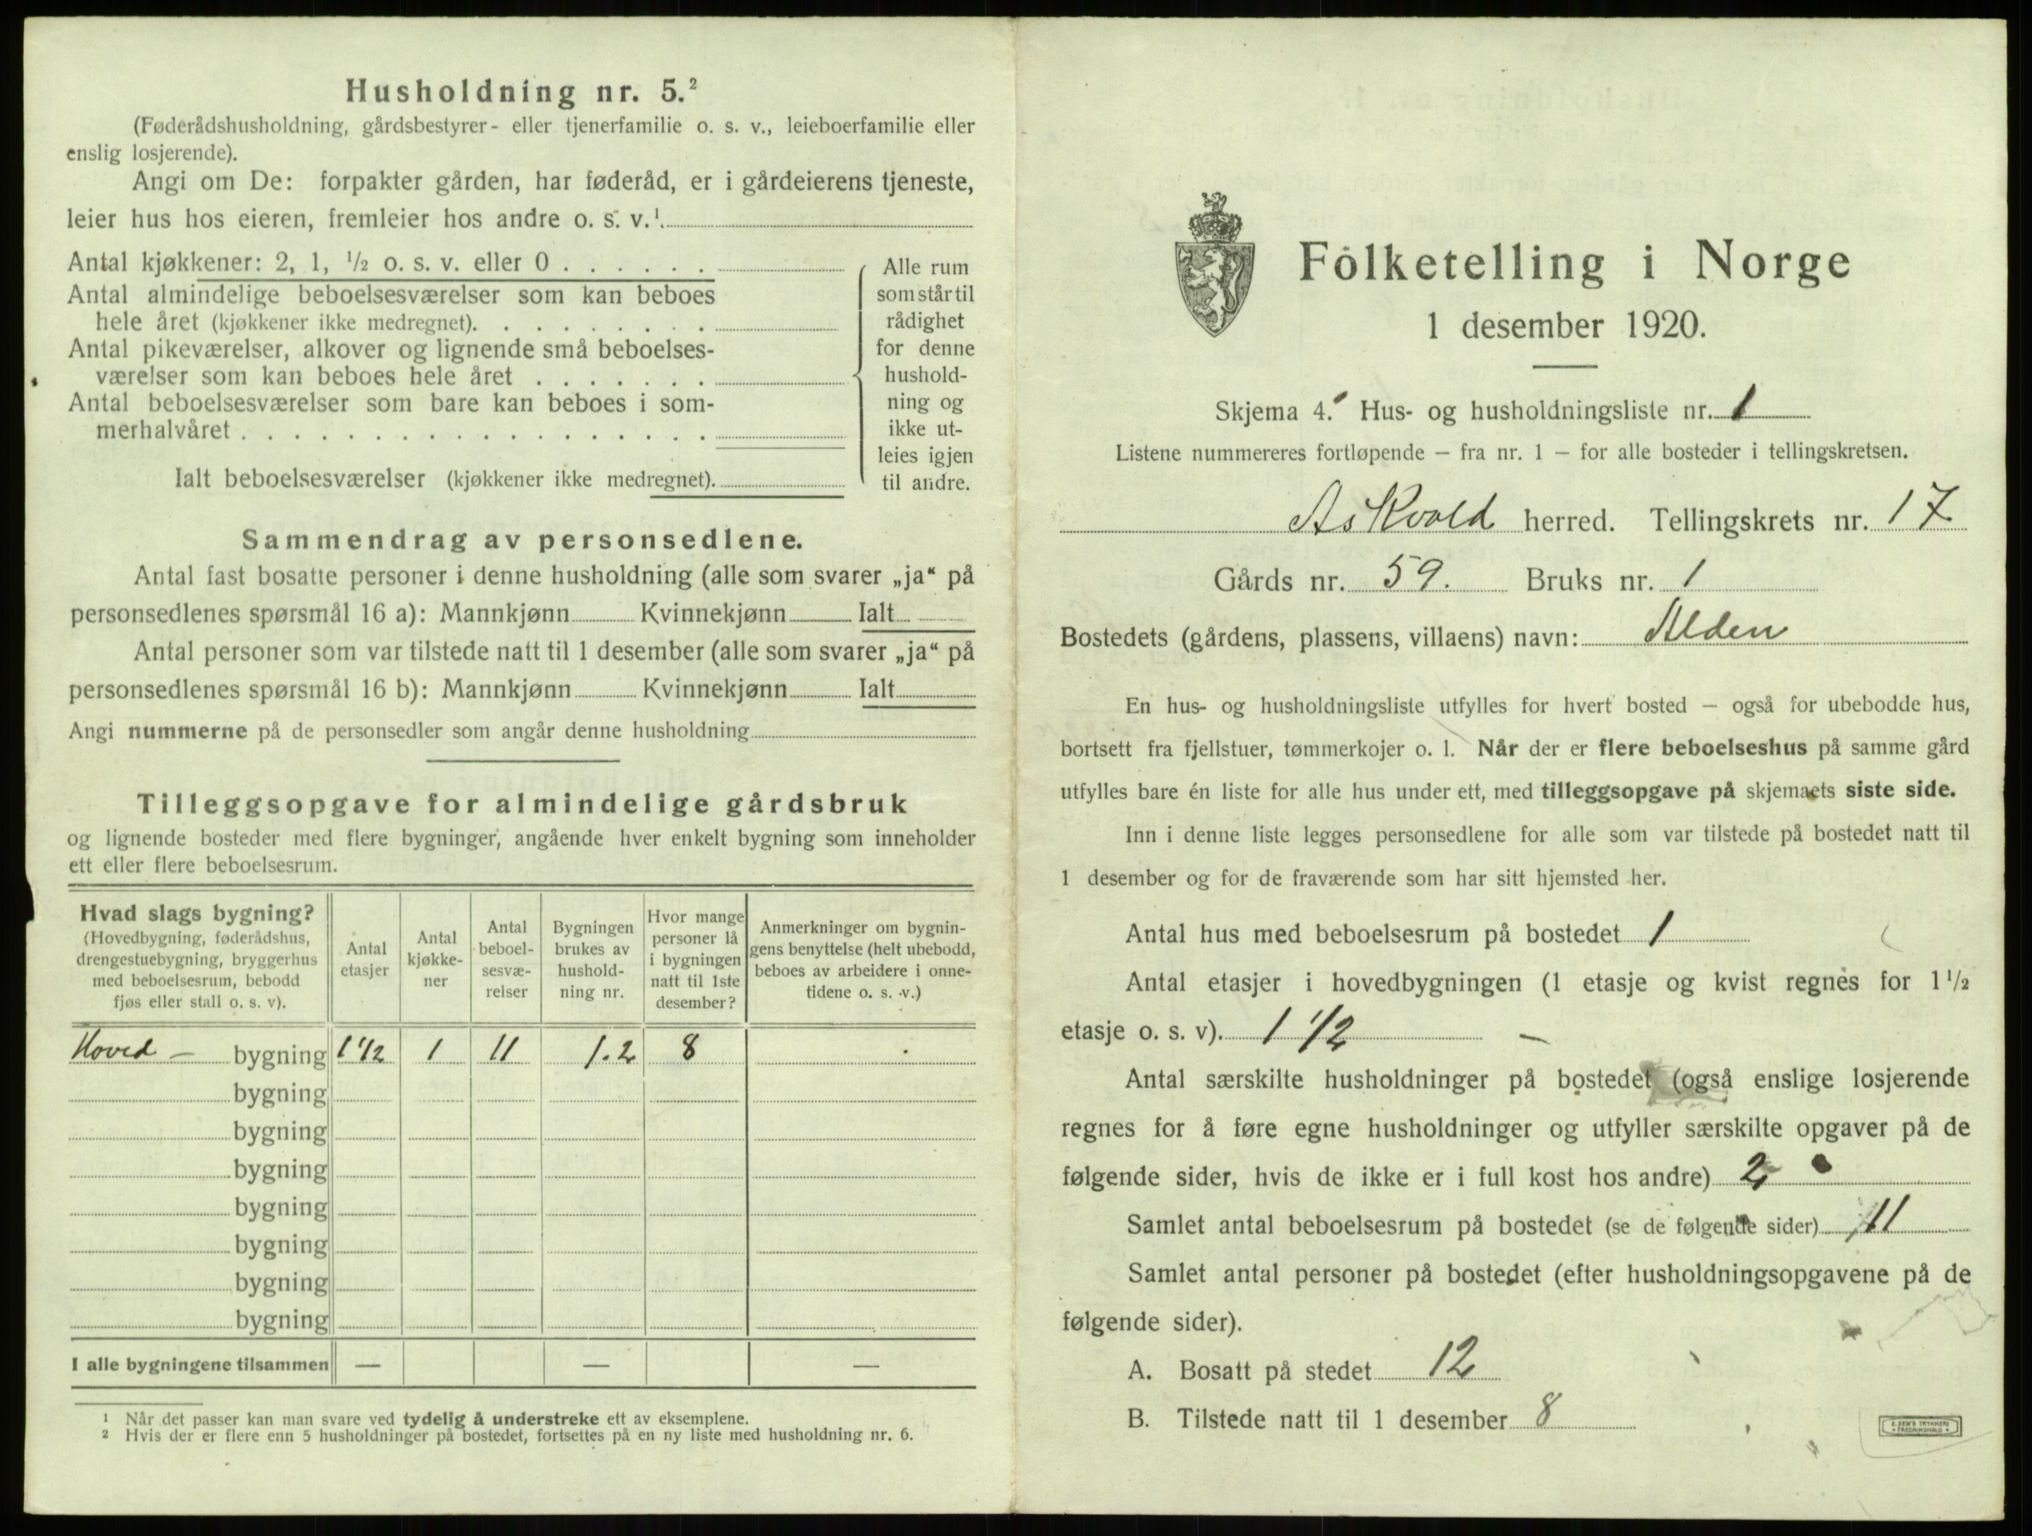 Husholdning nr. 5.²
(Føderådshusholdning, gårdsbestyrer- eller tjenerfamilie o. s. v., leieboerfamilie eller
enslig losjerende).
Angi om De: forpakter gården, har føderåd, er i gårdeierens tjeneste,
leier hus hos eieren, fremleier hos andre o. s. v.¹
Antal kjøkkener: 2, 1, ½ o. s. v. eller 0 . . . . . .
Antal almindelige beboelsesværelser som kan beboes
hele året (kjøkkener ikke medregnet). . . . . . . . .
Antal pikeværelser, alkover og lignende små beboelses-
værelser som kan beboes hele året . . . . . . .
Antal beboelsesværelser som bare kan beboes i som-
merhalvåret . . . . . . . . . . . . . . . . . .
Ialt beboelsesværelser (kjøkkener ikke medregnet).
Alle rum
som står til
rådighet
for denne
hushold-
ning og
ikke ut-
leies igjen
til andre.
Sammendrag av personsedlene.
Antal fast bosatte personer i denne husholdning (alle som svarer „ja“ på
personsedlenes spørsmål 16 a): Mannkjønn Kvinnekjønn Ialt
Antal personer som var tilstede natt til 1 desember (alle som svarer „ja“ på
personsedlenes spørsmål 16 b): Mannkjønn Kvinnekjønn Ialt
Angi nummerne på de personsedler som angår denne husholdning
Tilleggsopgave for almindelige gårdsbruk
og lignende bosteder med flere bygninger, angående hver enkelt bygning som inneholder
ett eller flere beboelsesrum.
Hvad slags bygning?
(Hovedbygning, føderådshus,
drengestuebygning, bryggerhus
med beboelsesrum, bebodd
fjøs eller stall o. s. v).
Antal
etasjer
Antal
kjøkke-
ner
Antal
beboel-
sesvæ-
relser
Bygningen
brukes av
hushold-
ning nr.
Hvor mange
personer lå
i bygningen
natt til 1ste
desember?
Anmerkninger om bygnin-
gens benyttelse (helt ubebodd,
beboes av arbeidere i onne-
tidene o. s. v.)
Hoved - bygning 1 1/2 1 11 1.2 8
bygning
bygning
bygning
bygning
bygning
bygning
bygning
I alle bygningene tilsammen — — —
¹ Når det passer kan man svare ved tydelig å understreke ett av eksemplene.
² Hvis der er flere enn 5 husholdninger på bostedet, fortsettes på en ny liste med husholdning nr. 6.
Folketelling i Norge
1 desember 1920.
Skjema 4. Hus- og husholdningsliste nr. 1
Listene nummereres fortløpende – fra nr. 1 – for alle bosteder i tellingskretsen.
Askvold herred. Tellingskrets nr. 17
Gårds nr. 59. Bruks nr. 1
Bostedets (gårdens, plassens, villaens) navn: Alden
En hus- og husholdningsliste utfylles for hvert bosted – også for ubebodde hus,
bortsett fra fjellstuer, tømmerkojer o. l. Når der er flere beboelseshus på samme gård
utfylles bare én liste for alle hus under ett, med tilleggsopgave på skjemaets siste side.
Inn i denne liste legges personsedlene for alle som var tilstede på bostedet natt til
1 desember og for de fraværende som har sitt hjemsted her.
Antal hus med beboelsesrum på bostedet 1
Antal etasjer i hovedbygningen (1 etasje og kvist regnes for 1½
etasje o. s. v). 1 1/2
Antal særskilte husholdninger på bostedet (også enslige losjerende
regnes for å føre egne husholdninger og utfyller særskilte opgaver på de
følgende sider, hvis de ikke er i full kost hos andre) 2
Samlet antal beboelsesrum på bostedet (se de følgende sider) 11
Samlet antal personer på bostedet (efter husholdningsopgavene på de
følgende sider).
A. Bosatt på stedet 12
B. Tilstede natt til 1 desember 8
E. SEM'S TRYKKERI
FREDRIKSHALD